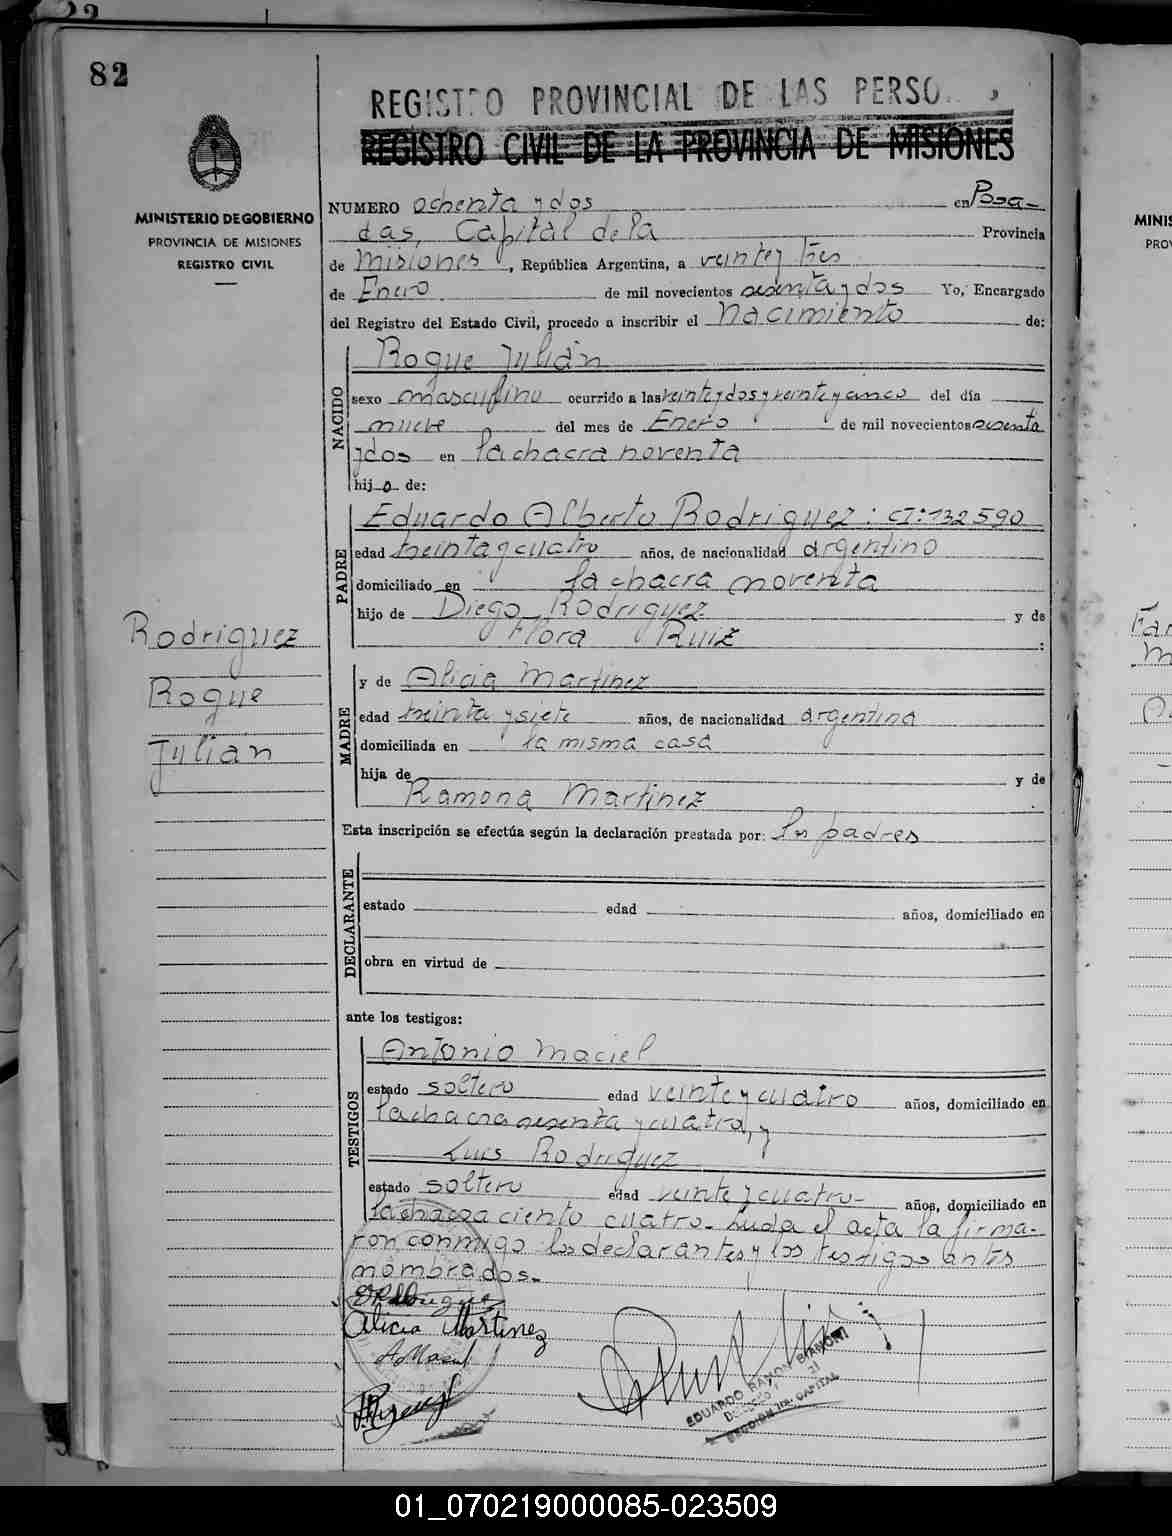 82
REGISTRO PROVINCIAL DE LAS PERSO
REGISTRO CIVIL DE LA PROVINCIA DE MISIONES
MINISTERIO DE GOBIERNO
PROVINCIA DE MISIONES
REGISTRO CIVIL
NUMERO ochenta y dos en Posa-
das, Capital de la Provincia
de Misiones, República Argentina, a veinte y tres
de Enero de mil novecientos sesenta y dos Yo, Encargado
del Registro del Estado Civil, procedo a inscribir el nacimiento de:
NACIDO
Roque Julián
sexo masculino ocurrido a las veinte y dos y veinte y cinco del día
nueve del mes de Enero de mil novecientos sesenta
y dos en la chacra noventa
hijo de:
PADRE
Eduardo Alberto Rodriguez: CI: 132590
edad treinta y cuatro años, de nacionalidad argentino
domiciliado en la chacra noventa
hijo de Diego Rodriguez y de
Flora Ruiz :
Rodriguez
Roque
Julian
MADRE
y de Alicia Martinez
edad treinta y siete años, de nacionalidad argentina
domiciliada en la misma casa
hija de y de
Ramona Martinez
Esta inscripción se efectúa según la declaración prestada por: los padres
DECLARANTE
estado edad años, domiciliado en
obra en virtud de
ante los testigos:
TESTIGOS
Antonio Maciel
estado soltero edad veinte y cuatro años, domiciliado en
la chacra sesenta y cuatro, y
Luis Rodriguez
estado soltero edad veinte y cuatro- años, domiciliado en
la chacra ciento cuatro. Leida el acta la firma-
ron conmigo los declarantes y los testigos antes
nombrados.-
Alicia Martinez
EDUARDO RAMON
CAPITAL
MINIS
PRO
01_070219000085-023509